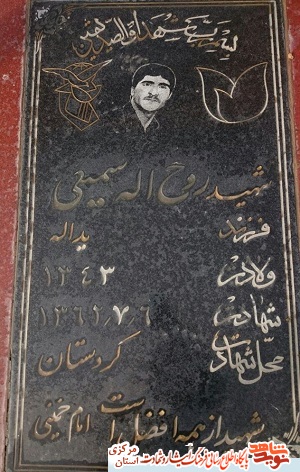 بسم رب الشهداء والصدیقین
شهید روح اله سمیعی
فرزند یداله
ولادت ۱۳۴۳
شهادت ۱۳۶۱/۷/۶
محل شهادت کردستان
شهید از همه افضل است امام خمینی
شاهد
نوید
پایگاه اطلاع رسانی فرهنگ ایثار و شهادت
استان مرکزی